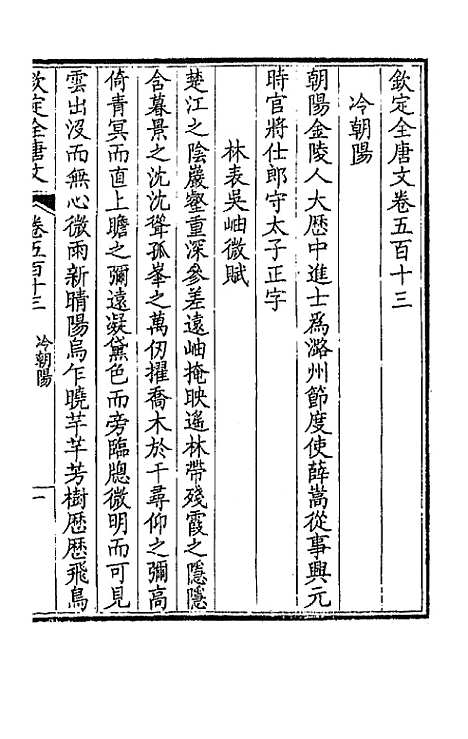 欽定全唐文卷五百十三
冷朝陽
朝陽金陵人大歷中進士爲潞州節度使薛嵩從事興元
時官將仕郎守太子正字
林表吳岫微賦
楚江之陰巖壑重深參差遠岫掩映遙林帶殘霞之隱隱
含暮景之沈沈聳孤峯之萬仞擢喬木於千尋仰之彌高
倚青冥而直上瞻之彌遠凝黛色而旁臨牕微明而可見
雲出沒而無心微雨新晴陽烏乍曉芊芊芳樹歷歷飛鳥
欽定全唐文
卷五百十三
冷朝陽
一